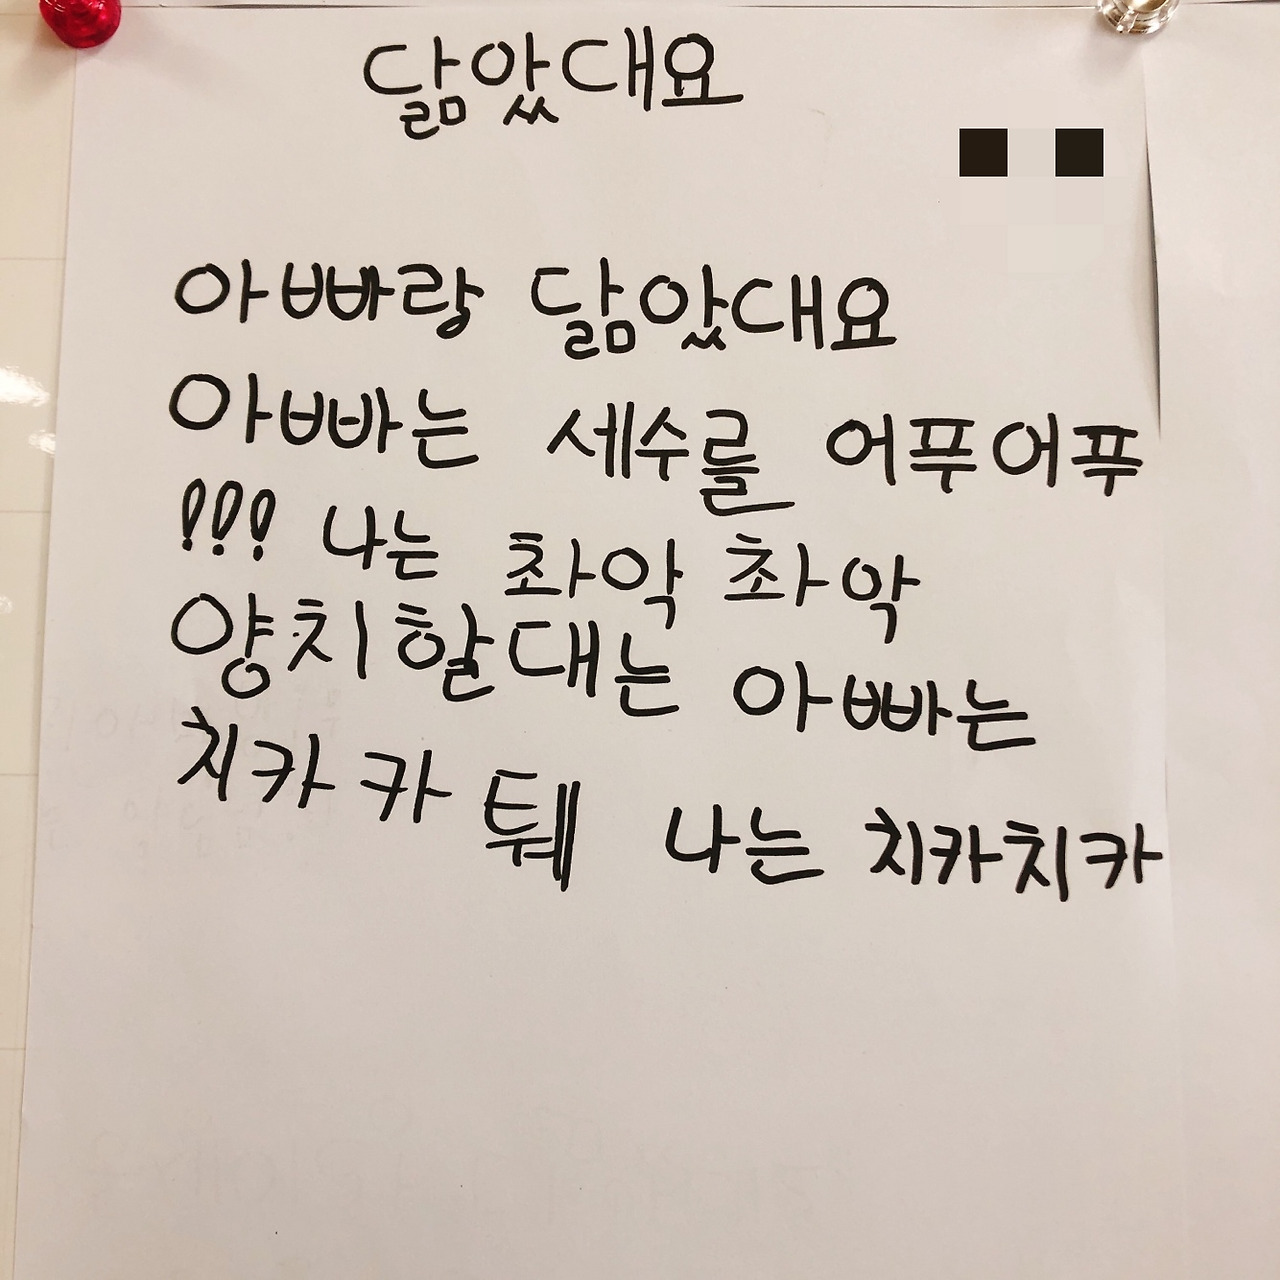 닮았대요
아빠랑 닮았대요
아빠는 세수를 어푸어푸
!!! 나는 촤악 촤악
양치할대는 아빠는
치카카 퉤 나는 치카치카